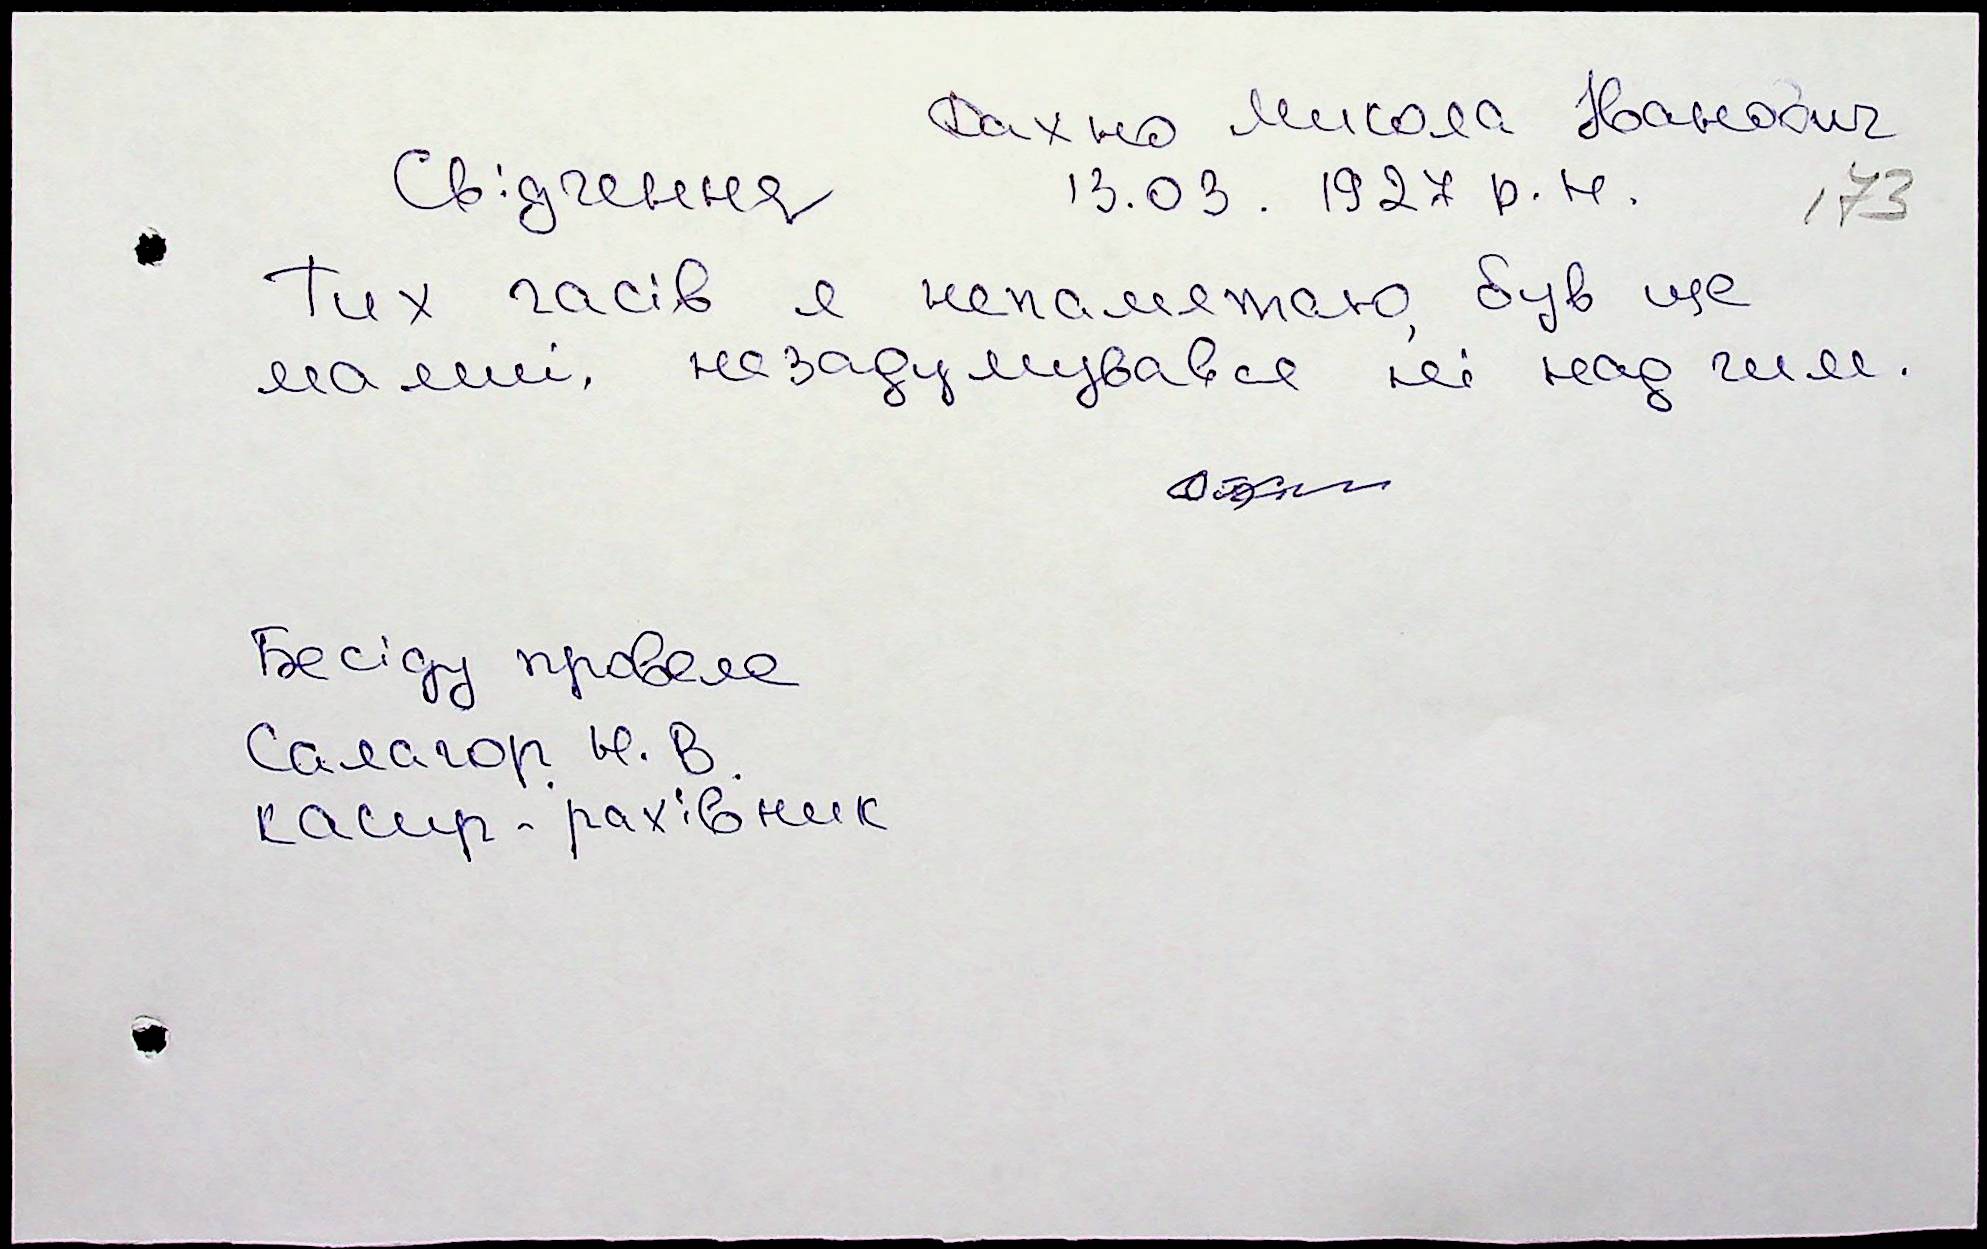 Дахно Микола Іванович
Свідчення 13.03.1927 р.н. 173
Тих часів я непамятаю, був ще
малий, незадумувався ні над чим.
Бесіду провела
Салагор Н.В.
касир-рахівник